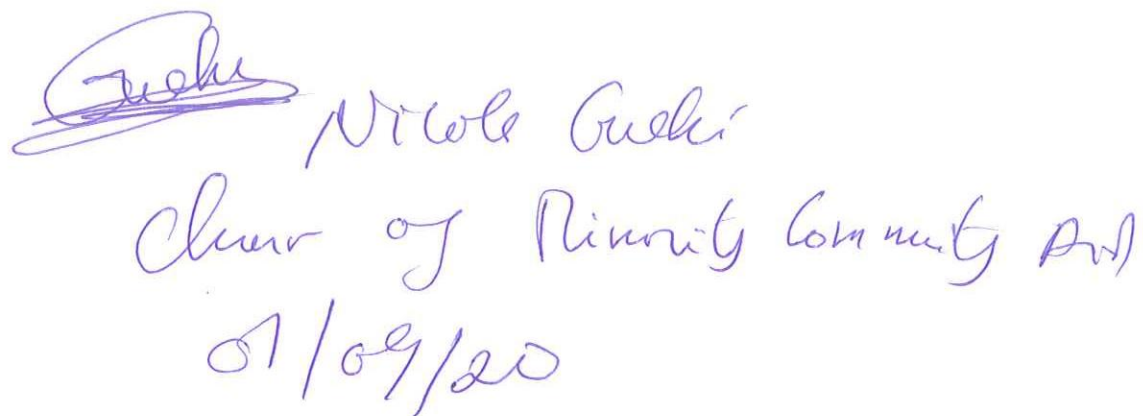 Guehi
Nicole Guehi
Chair of Minority Community Aid
01/09/20